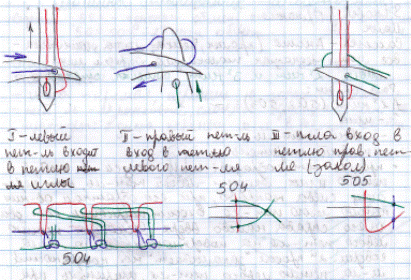 I - левый
пет-ль входит
в петлю пет-
ля иглы
II - правый пет-ль
вход в петлю
левого пет-ля
III - игла вход в
петлю прав. пет-
ля (залом)
504
505
504